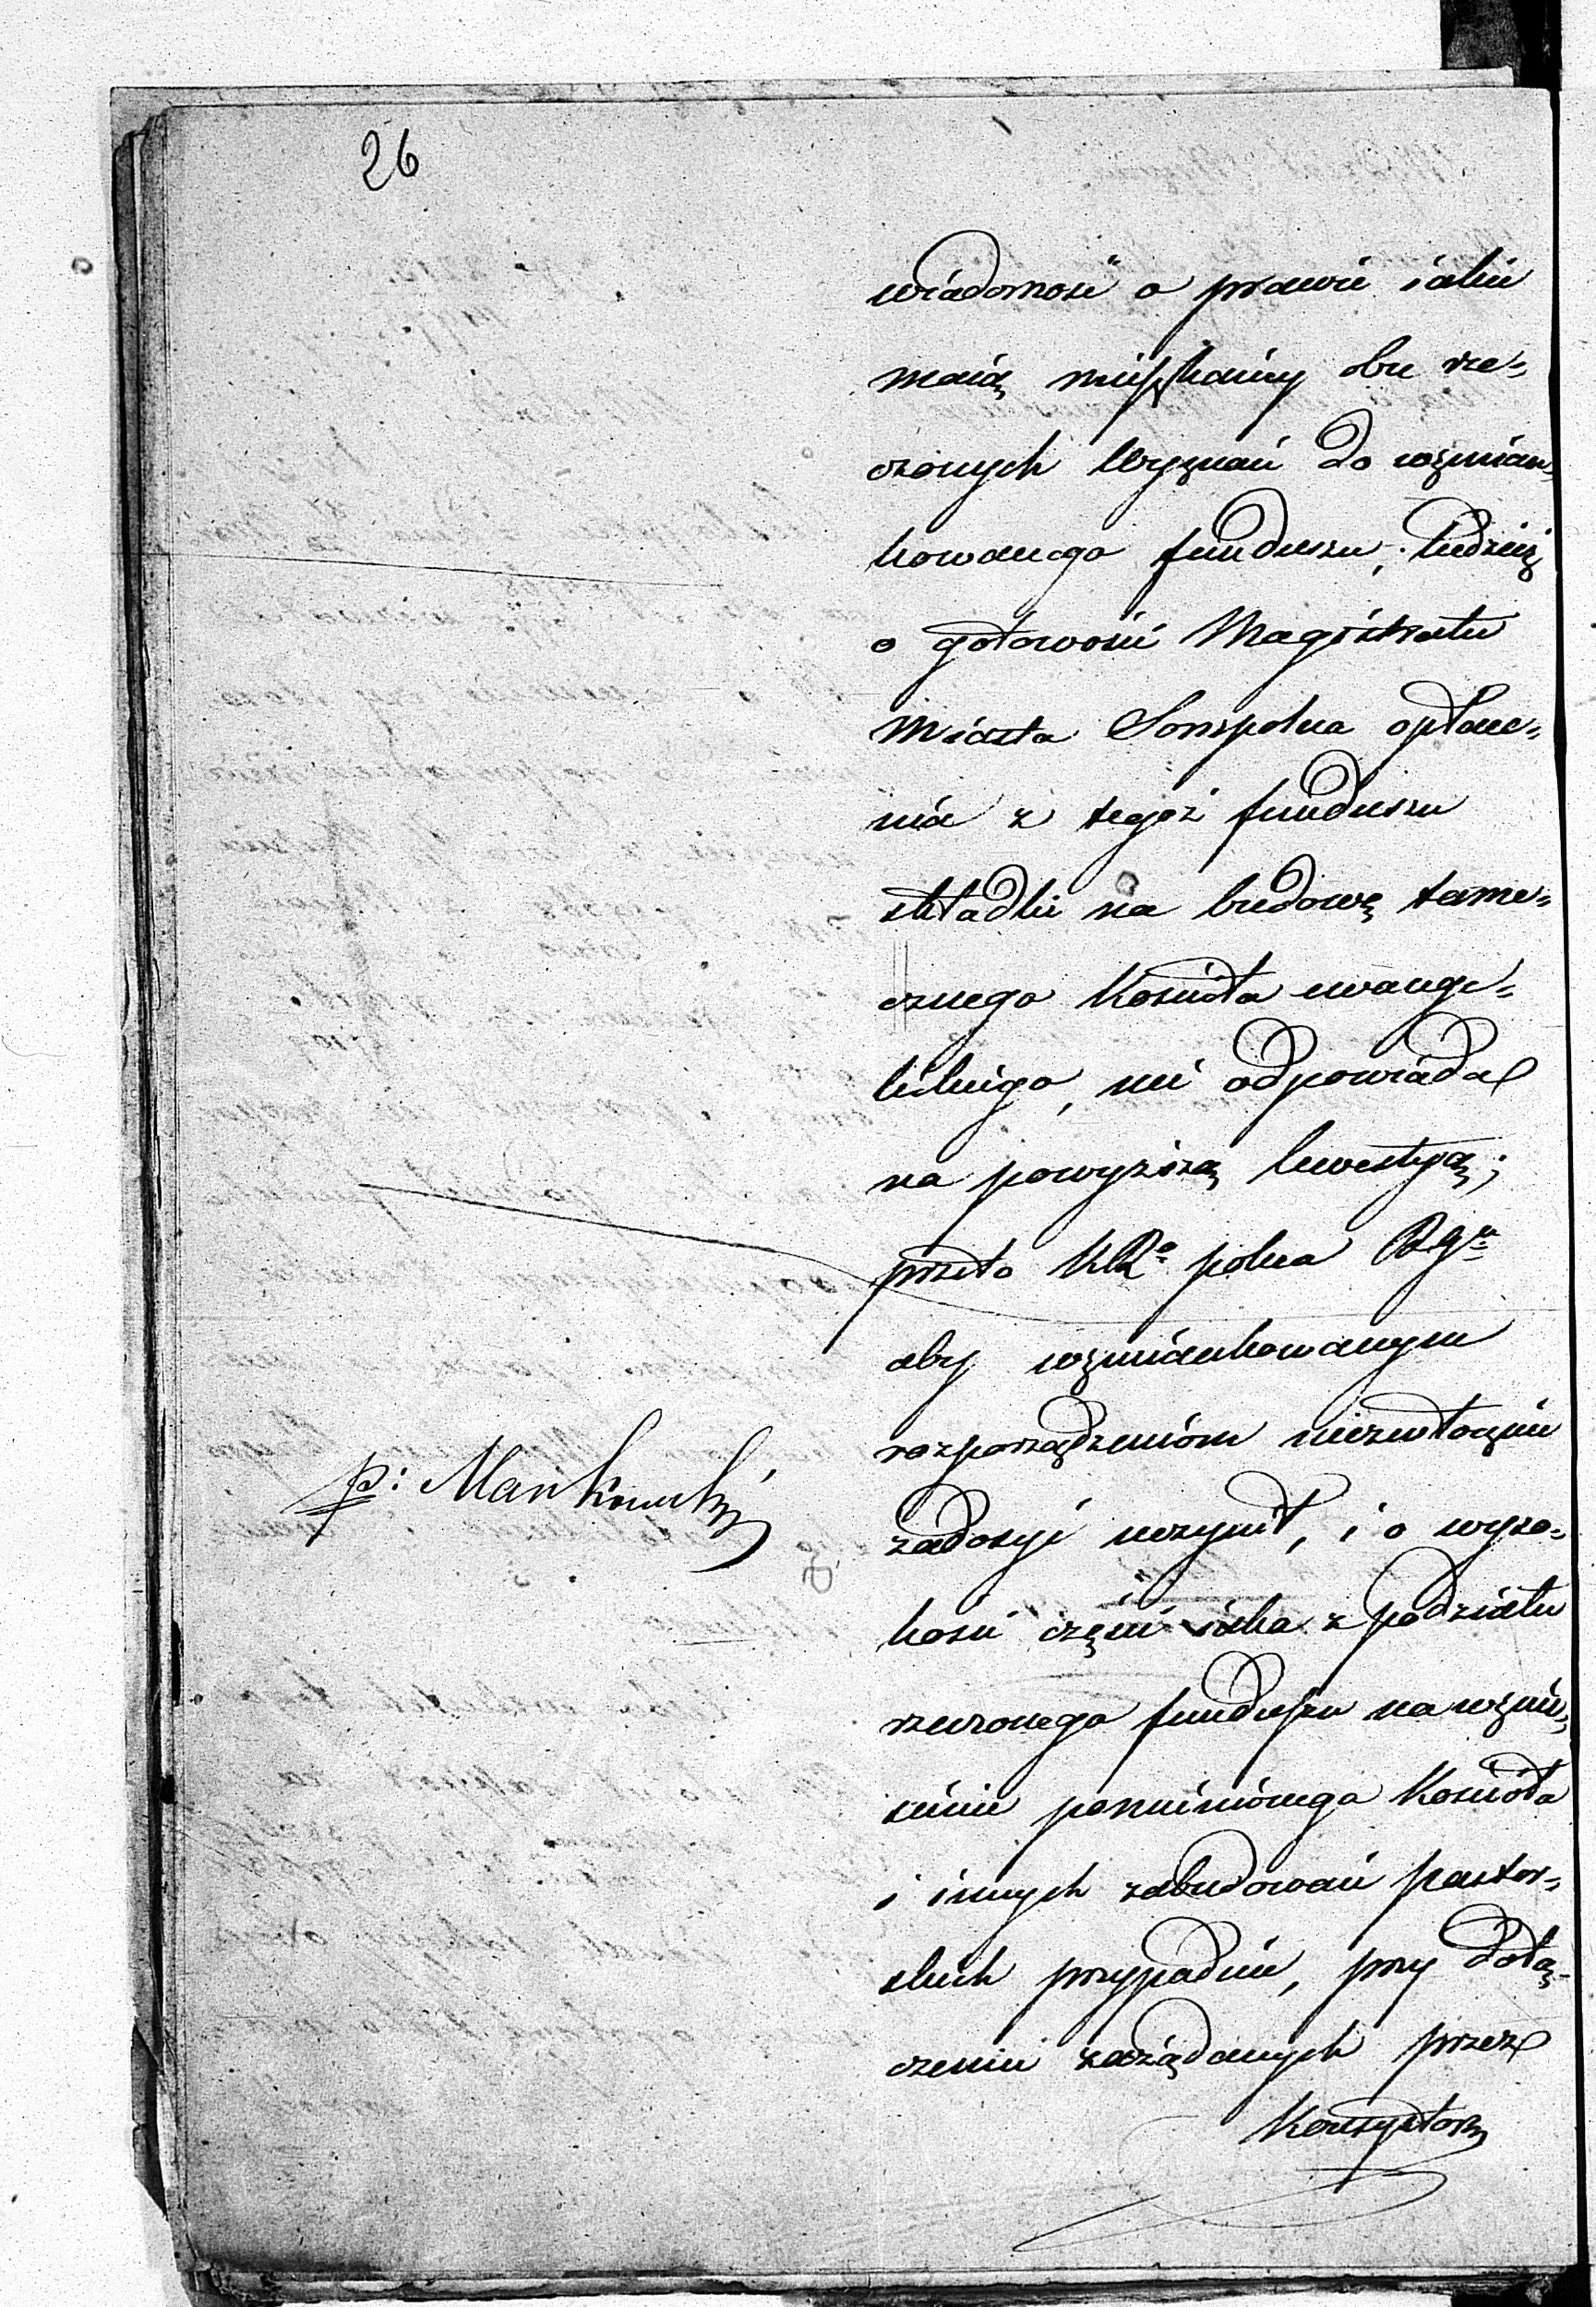 26
wiadomość o prawie iakie
maią mieszkańcy obu rze=
czonych Wyznań do wzmian=
kowanego funduszu; tudzież
o gotowości Magistratu
Miasta Sompolna opłace=
nia z tegoż funduszu
składki na budowę tame=
cznego Kościoła ewange=
lickiego, nie odpowiada
na powyższą kwestyą;
przeto KRo poleca RGu
aby wzmiankowanym
rozporządzeniom niezwłocznie
zadosyć uczynił, i o wyso=
p: Mankowski
kości części iaka z podziału
rzeczonego funduszu na wznie=
sienie pomienionego Kościoła
i innych zabudowań pastor=
skich przypadnie, przy dołą=
czeniu zażądanych przez
Konsystorz